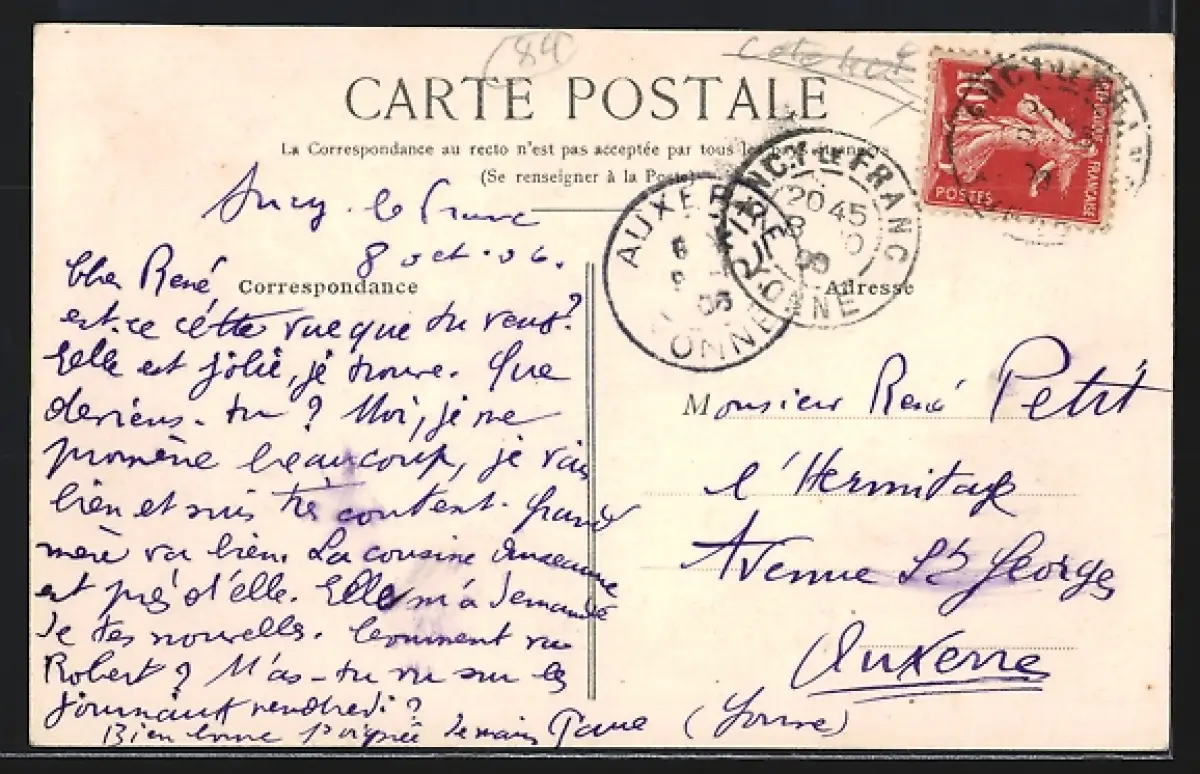 (84
CARTE POSTALE
La Correspondance au recto n'est pas acceptée par tous les pays étrangers
(Se renseigner à la Poste)
Ancy-le Franc
8 oct. 06.
Correspondance
Cher René
est-ce cette vue que tu veux?
Elle est jolie, je trouve. Que
deviens-tu? Moi, je me
promène beaucoup, je vais
bien et suis très content. Grand
mère va bien. La cousine
est près d'elle. Elle m'a demandé
de tes nouvelles. Comment va
Robert? M'as-tu vu sur les
journaux vendredi?
Bien bonne poignée de main
AUXERRE
YONNE
ANCY LE FRANC
20 45
8
YONNE
REPUBLIQUE FRANÇAISE
10c
POSTES
Adresse
Monsieur René Petit
l'Hermitage
Avenue St Georges
Auxerre
(Yonne)